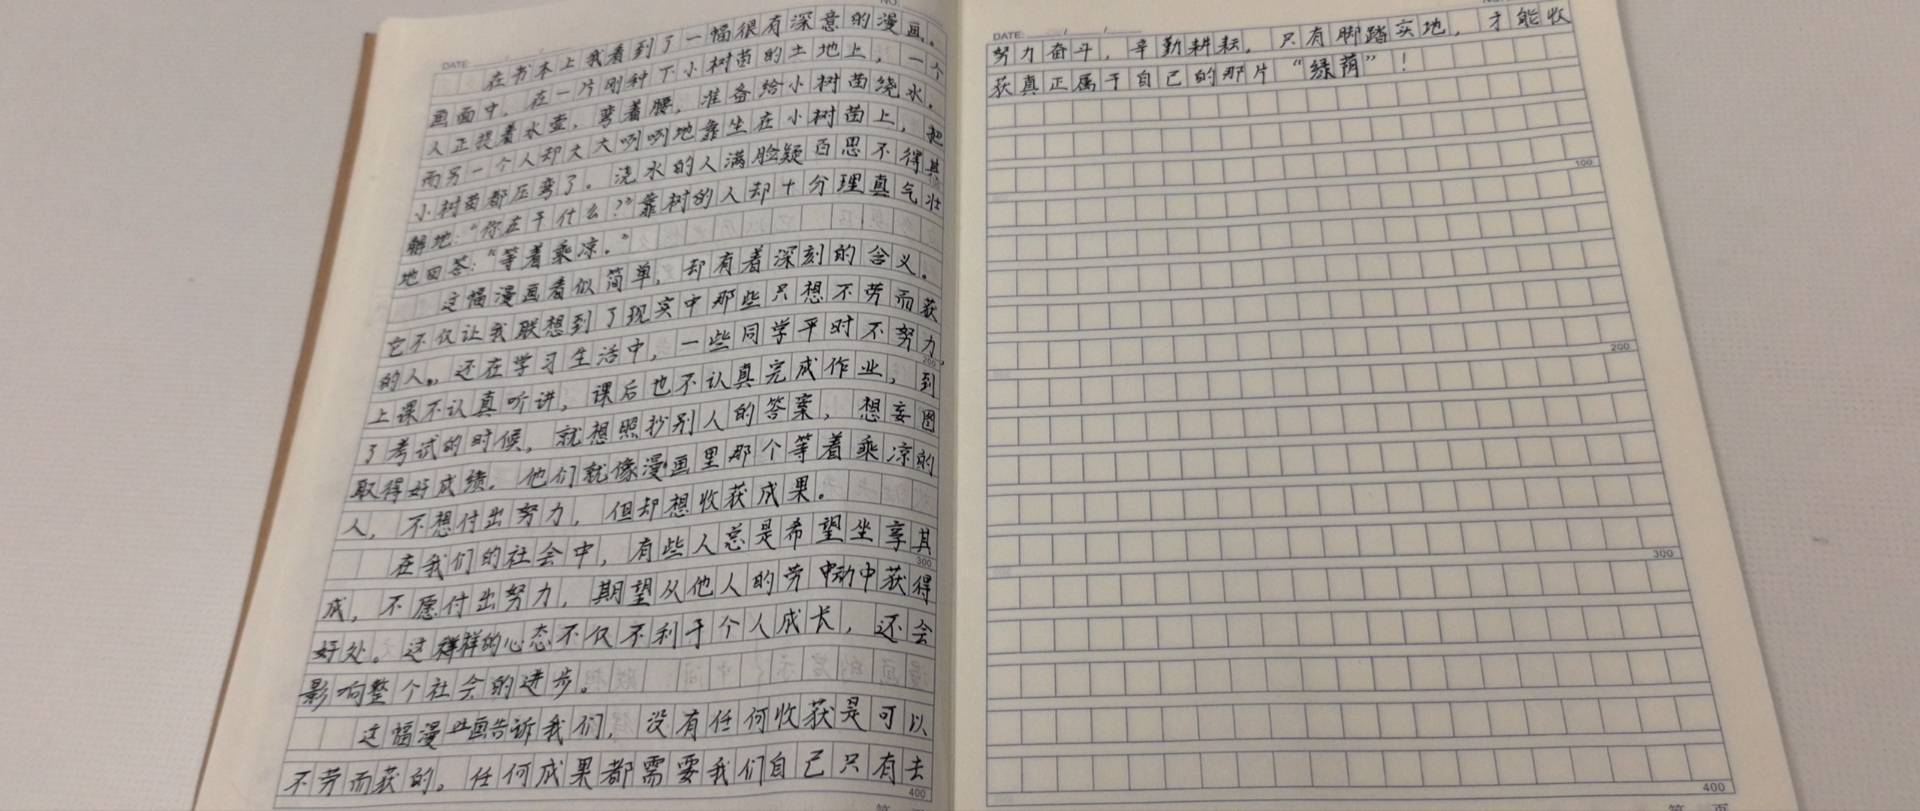 NO.
DATE / /
在书本上我看到了一幅很有深意的漫画。
画面中，在一片刚种下小树苗的土地上，一个
人正提着水壶，弯着腰，准备给小树苗绕水。
而另一个人却大大咧咧地靠坐在小树苗上，把
小树苗都压弯了。浇水的人满脸疑百思不得其
解地：“你在干什么？”靠树的人却十分理真气壮
地回答：“等着乘凉。”
这幅漫画看似简单，却有着深刻的含义。
它不仅让我联想到了现实中那些只想不劳而获
的人。，还在学习生活中，一些同学平时不努力，
200
上课不认真听讲，课后也不认真完成作业，到
了考试的时候，就想照抄别人的答案，想妄图
取得好成绩。他们就像漫画里那个等着乘凉的
人，不想付出努力，但却想收获成果。
在我们的社会中，有些人总是希望坐享其
300
成，不愿付出努力，期望从他人的劳动中获得
好处。这样的心态不仅不利于个人成长，还会
影响整个社会的进步。
这幅漫画告诉我们，没有任何收获是可以
不劳而获的。任何成果都需要我们自己只有去
400
DATE: / /
努力奋斗，辛勤耕耘。只有脚踏实地，才能收
获真正属于自己的那片“绿荫”！
100
200
300
400